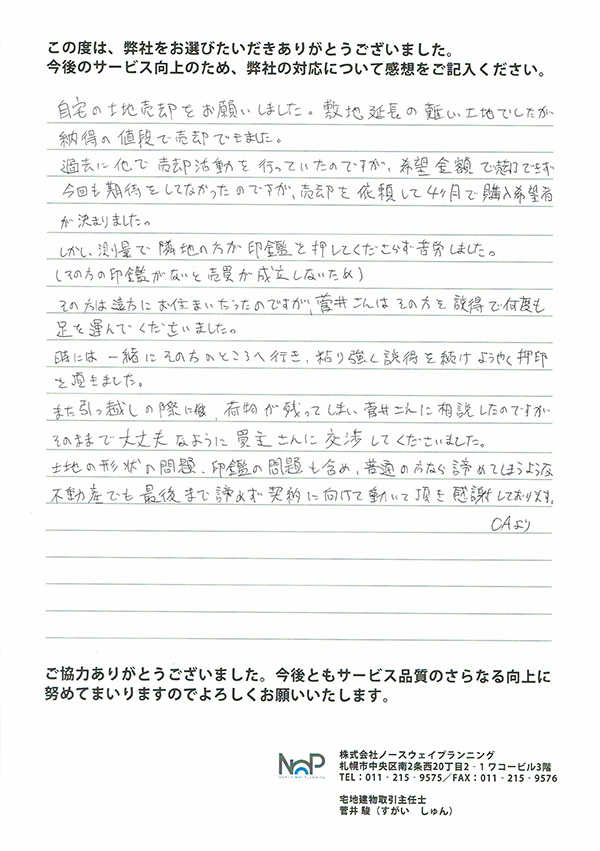 この度は、弊社をお選びたいだきありがとうございました。
今後のサービス向上のため、弊社の対応について感想をご記入ください。
自宅の土地売却をお願いしました。敷地延長の難しい土地でしたが
納得の値段で売却できました。
過去に他で売却活動を行っていたのですが、希望金額で売却できず
今回も期待をしてなかったのですが、売却を依頼して4ヶ月で購入希望者
が決まりました。
しかし、測量で隣地の方が印鑑を押してくださらず苦労しました。
(その方の印鑑がないと売買が成立しないため)
その方は遠方にお住まいだったのですが、菅井さんはその方を説得で何度も
足を運んでくださいました。
時には一緒にその方のところへ行き、粘り強く説得を続けようやく押印
を頂きました。
また引っ越しの際に、荷物が残ってしまい菅井さんに相談したのですが
そのままで大丈夫なように買主さんに交渉してくださいました。
土地の形状の問題、印鑑の問題も含め、普通の方なら諦めてしまうような
不動産でも最後まで諦めず契約に向けて動いて頂き感謝しております。
OAより
ご協力ありがとうございました。今後ともサービス品質のさらなる向上に
努めてまいりますのでよろしくお願いいたします。
NWP
NORTH WAY PLANNING
株式会社ノースウェイプランニング
札幌市中央区南2条西20丁目2‐1 ワコービル3階
TEL：011‐215‐9575／FAX：011‐215‐9576
宅地建物取引主任士
菅井 駿（すがい　しゅん）